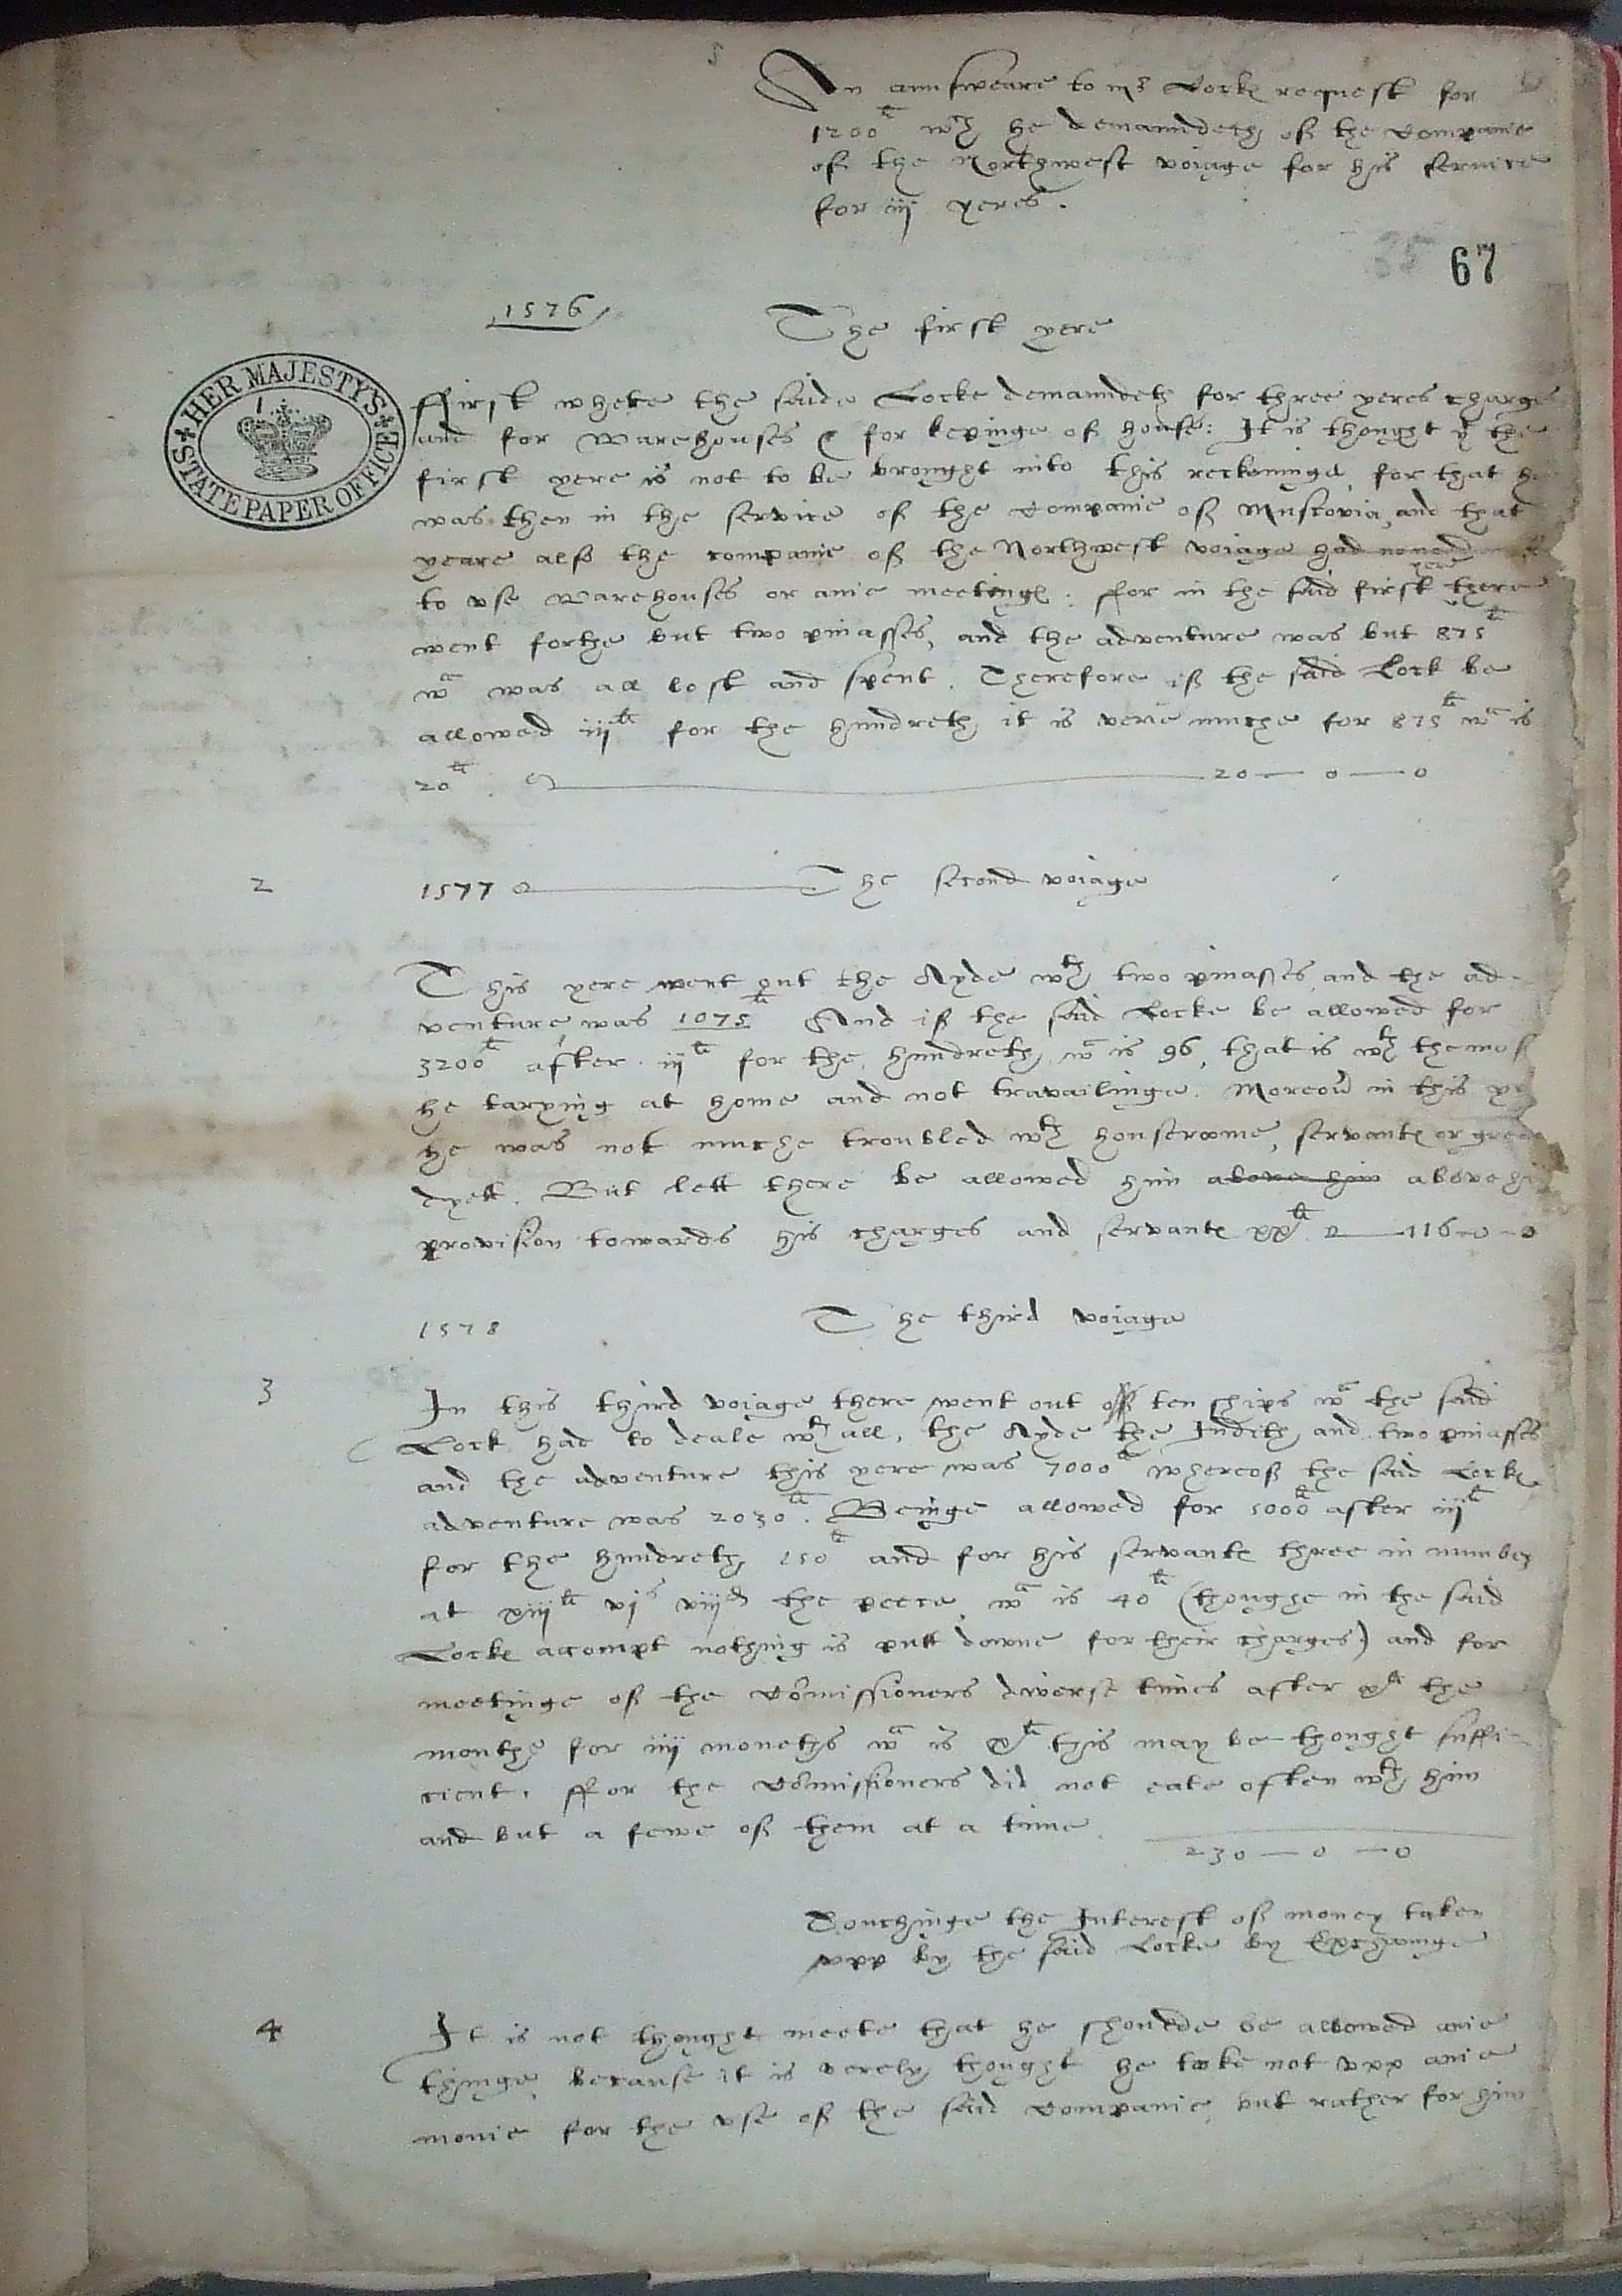 An aunsweare to mr Lockes request for
1200li wch he demaundeth of the Companie
of the Northwest voiage for his service
for iij yeres.
67
1576
The first yere
HER MAJESTY'S
STATE PAPER OFFICE
1
First where the saide Locke demaundeth for three yeres charges
and for Warehouses & for kepinge of house: It is thought yt the
first yere is not to be brought into this reckoninge, for that he
was then in the service of the Companie of Muscovia, and that
yeare also the companie of the Northwest voiage had
yere
to use Warehouses or anie meetinges. ffor in the said first there
went forthe but two pinasses, and the adventure was but 875li
wch was all lost and spent. Therefore if the said Lock be
allowed iijli for the hundreth it is verie muche for 875li wch is
20li 20 — 0 — 0
2
1577 The second voiage
This yere went out the Ayde wth two pinasses and the ad-
venture was 1075li And if the said Locke be allowed for
3200li after iijli for the hundreth wch is 96, that is wth the most
he tarying at home and not travailinge. Moreover in this
he was not muche troubled wth houserome, servantes or
dyett. But lett there be allowed him above him above
provision towards his charges and servantes xxli 116–0–0
1578
The third voiage
3
In this third voiage there went out of ten ships wch the said
Lock had to deale wth all, the Ayde the Judith and two pinasses
and the adventure this yere was 7000li whereof the said Lockes
adventure was 2030li. Beinge allowed for 5000li after iijli
for the hundreth 150li and for his servantes three in number
at xiijli vjs viijd the peece wch is 40li (thoughe in the said
Lockes accompt nothing is putt downe for their charges) and for
meetinge of the Comissioners diverse times after xli the
monthe for iiij moneths wch is xlli this may be thought suffi-
cient. ffor the Comissioners did not eate often wth him
and but a fewe of them at a time
230 — 0 — 0
Touchinge the Interest of money taken
upp by the said Locke by Exchaunge
4
It is not thought meete that he shoulde be allowed anie
thinge because it is verely thought he toke not upp anie
monie for the use of the said Companie but rather for him